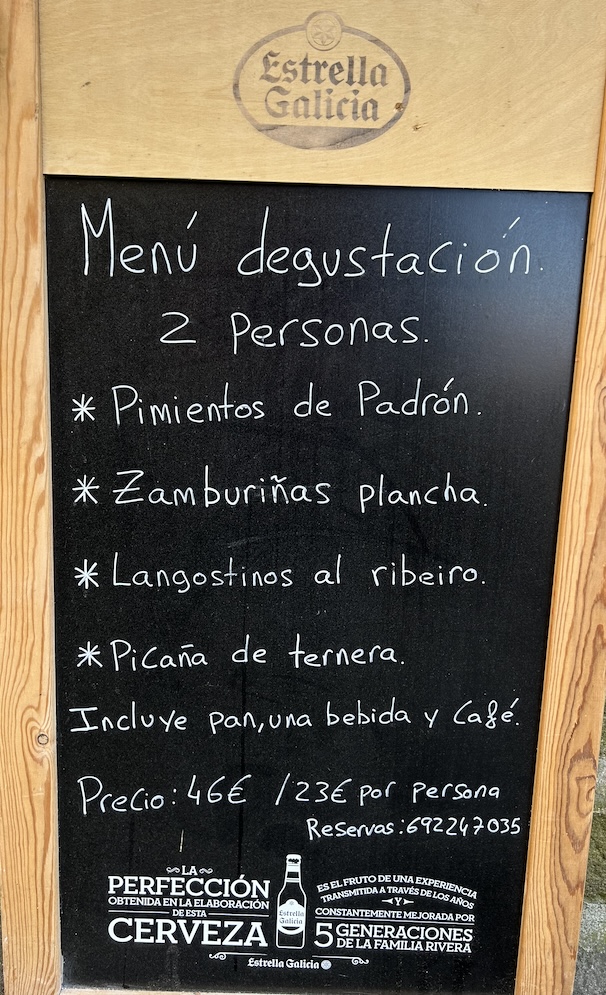 Estrella
Galicia
Menú degustación.
2 Personas.
* Pimientos de Padrón.
* Zamburiñas plancha.
* Langostinos al ribeiro.
* Picaña de ternera.
Incluye pan, una bebida y Café.
Precio: 46€ / 23€ por persona
Reservas: 692247035
LA
PERFECCIÓN
OBTENIDA EN LA ELABORACIÓN
DE ESTA
CERVEZA
Estrella
Galicia
ES EL FRUTO DE UNA EXPERIENCIA
TRANSMITIDA A TRAVÉS DE LOS AÑOS
Y
CONSTANTEMENTE MEJORADA POR
5 GENERACIONES
DE LA FAMILIA RIVERA
Estrella Galicia